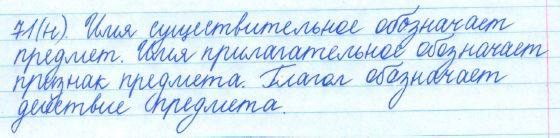 71(н). Имя существительное обозначает
предмет. Имя прилагательное обозначает
признак предмета. Глагол обозначает
действие предмета.